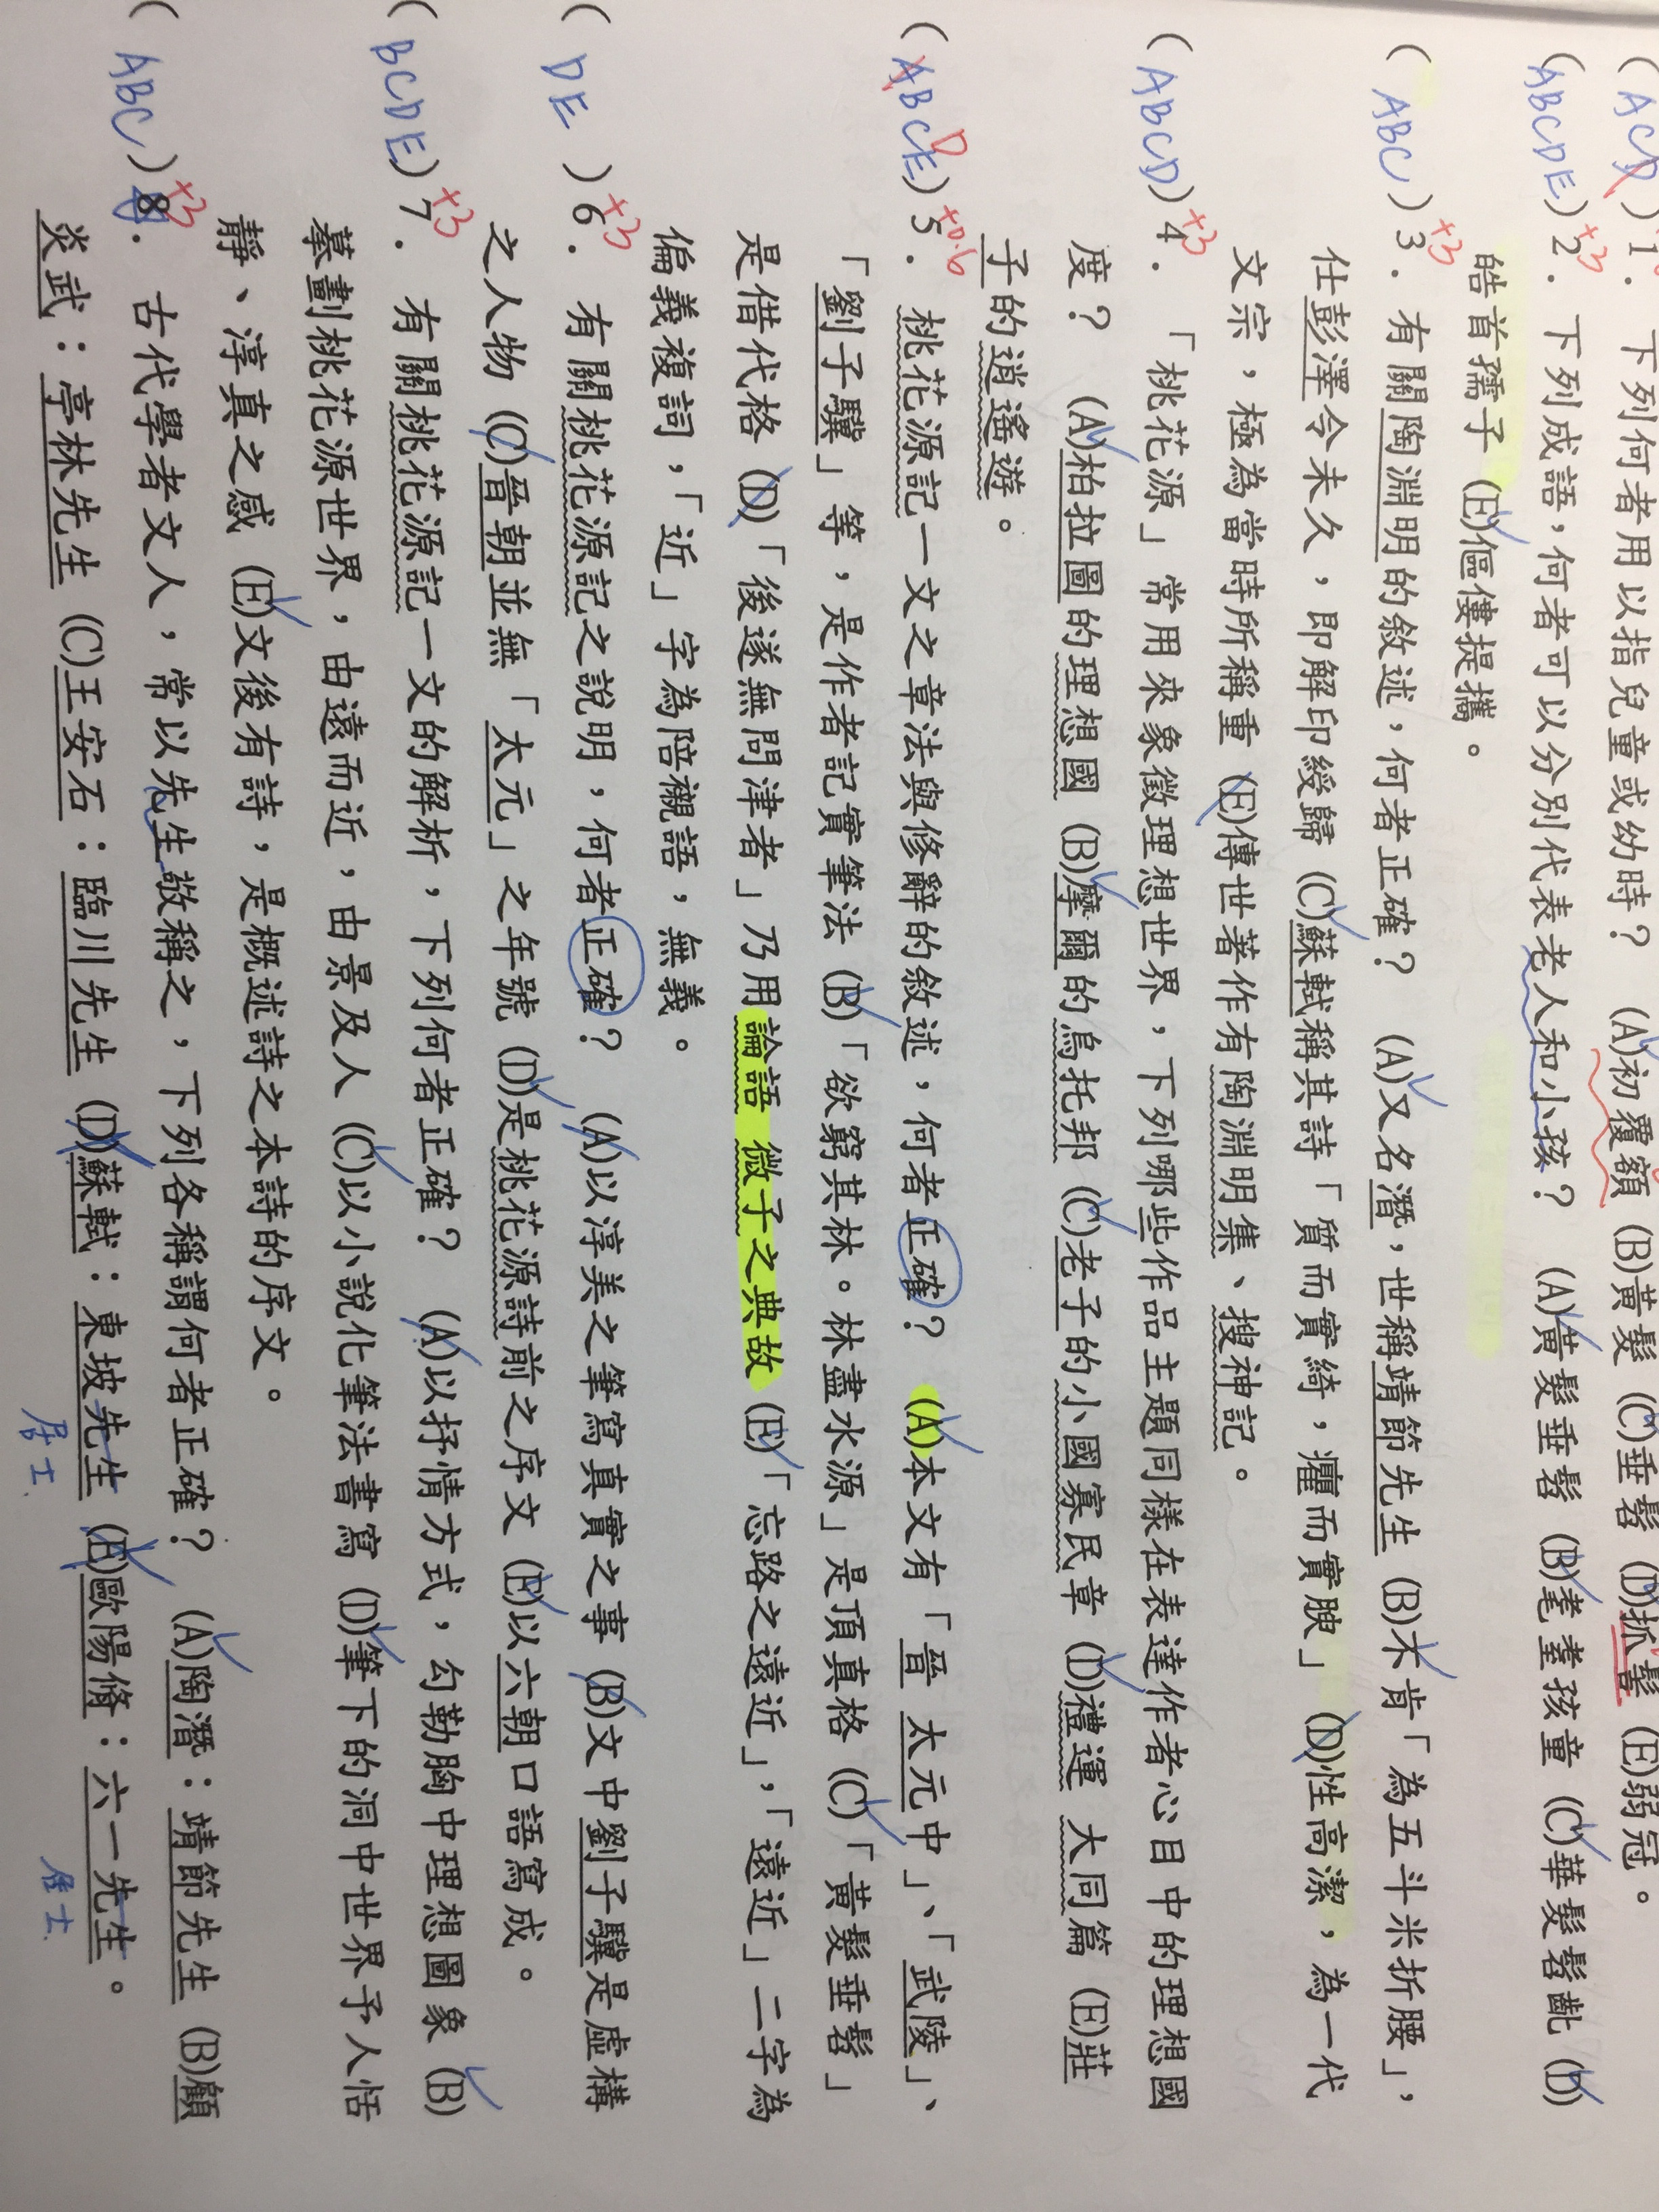 (ACD)1. 下列何者用以指兒童或幼時？ (A)初覆額 (B)黃髮 (C)垂髫 (D)抓髻 (E)弱冠。
(ABCDE)2. 下列成語，何者可以分別代表老人和小孩？ (A)黃髮垂髫 (B)耄耋孩童 (C)華髮髫齔 (D)
+3
皓首孺子 (E)傴僂提攜。
(ABC)3. 有關陶淵明的敘述，何者正確？ (A)又名潛，世稱靖節先生 (B)不肯「為五斗米折腰」，
+3
仕彭澤令未久，即解印綬歸 (C)蘇軾稱其詩「質而實綺，癯而實腴」 (D)性高潔，為一代
文宗，極為當時所稱重 (E)傳世著作有陶淵明集、搜神記。
(ABCD)4. 「桃花源」常用來象徵理想世界，下列哪些作品主題同樣在表達作者心目中的理想國
+3
度？ (A)柏拉圖的理想國 (B)摩爾的烏托邦 (C)老子的小國寡民章 (D)禮運 大同篇 (E)莊
子的逍遙遊。
(ABCE)5. 桃花源記一文之章法與修辭的敘述，何者正確？ (A)本文有「晉 太元中」、「武陵」、
D
+0.6
「劉子驥」等，是作者記實筆法 (B)「欲窮其林。林盡水源」是頂真格 (C)「黃髮垂髫」
是借代格 (D)「後遂無問津者」乃用論語 微子之典故 (E)「忘路之遠近」，「遠近」二字為
偏義複詞，「近」字為陪襯語，無義。
(DE)6. 有關桃花源記之說明，何者正確？ (A)以淳美之筆寫真實之事 (B)文中劉子驥是虛構
+3
之人物 (C)晉朝並無「太元」之年號 (D)是桃花源詩前之序文 (E)以六朝口語寫成。
(BCDE)7. 有關桃花源記一文的解析，下列何者正確？ (A)以抒情方式，勾勒胸中理想圖象 (B)
+3
摹劃桃花源世界，由遠而近，由景及人 (C)以小說化筆法書寫 (D)筆下的洞中世界予人恬
靜、淳真之感 (E)文後有詩，是概述詩之本詩的序文。
(ABC)8. 古代學者文人，常以先生敬稱之，下列各稱謂何者正確？ (A)陶潛：靖節先生 (B)顧
+3
炎武：亭林先生 (C)王安石：臨川先生 (D)蘇軾：東坡先生 (E)歐陽脩：六一先生。
居士
居士